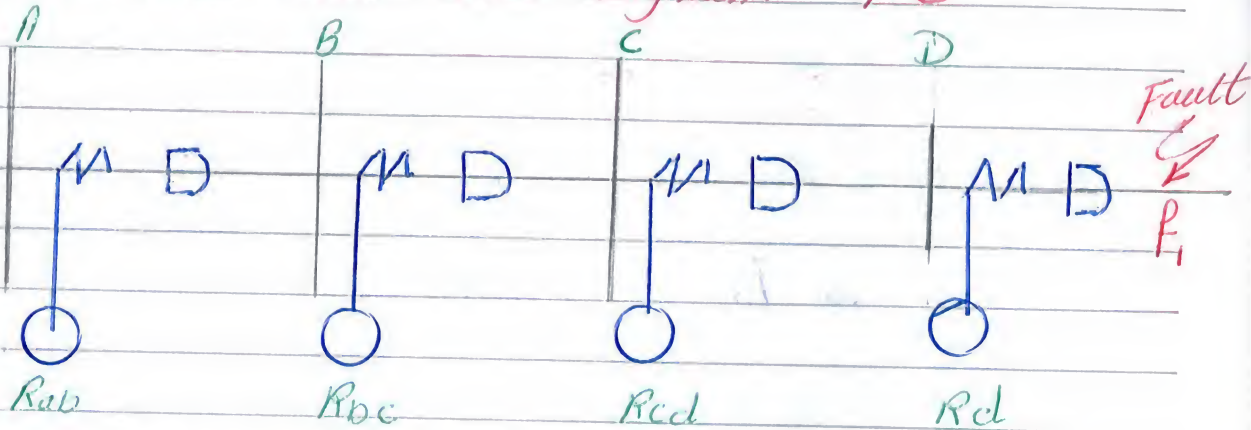 A B C D
Fault
P1
Rab Rbc Rcd Rd